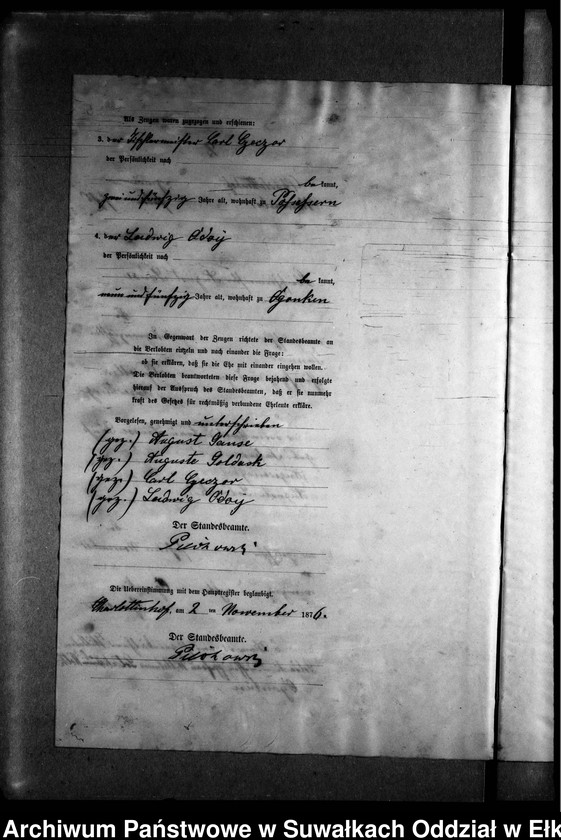 Als Zeugen waren zugezogen und erschienen:
3. der Tischlermeister Carl Gerzor
der Persönlichkeit nach
be kannt,
zwei und fünfzig Jahre alt, wohnhaft zu
4. der Ludwig Odoy
der Persönlichkeit nach
be kannt,
neun und fünfzig Jahre alt, wohnhaft zu Ogonken
In Gegenwart der Zeugen richtete der Standesbeamte an
die Verlobten einzeln und nach einander die Frage:
ob sie erklären, daß sie die Ehe mit einander eingehen wollen.
Die Verlobten beantworteten diese Frage bejahend und erfolgte
hierauf der Ausspruch des Standesbeamten, daß er sie nunmehr
kraft des Gesetzes für rechtmäßig verbundene Eheleute erkläre.
Vorgelesen, genehmigt und unterschrieben
(gez.) August
(gez.) Auguste Goldack
(gez.) Carl Gerzor
(gez.) Ludwig Odoy
Der Standesbeamte.
Die Uebereinstimmung mit dem Hauptregister beglaubigt.
Charlottenhof, am 2 ten November 1876.
Der Standesbeamte.
Archiwum Państwowe w Suwałkach Oddział w Ełk